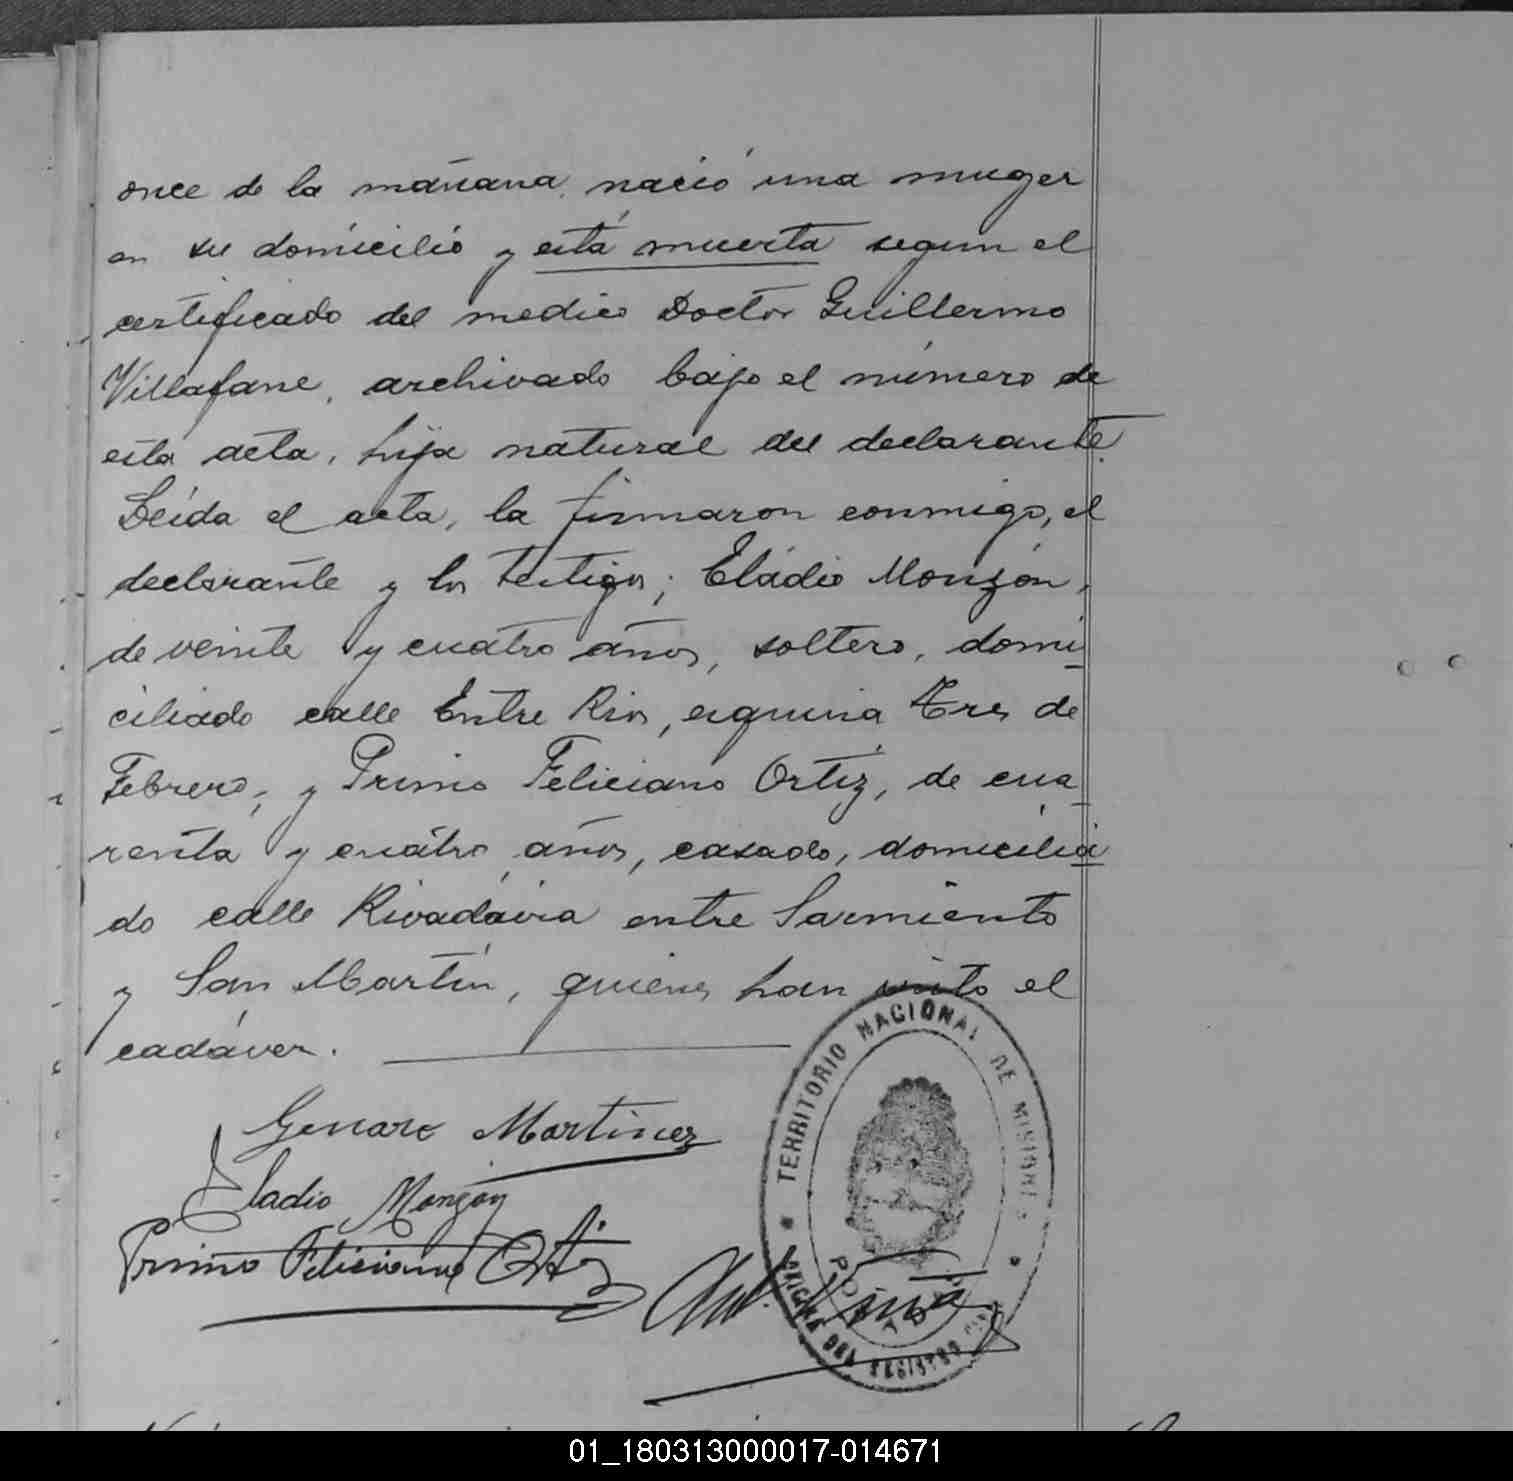 once de la mañana, nació una muger
en su domicilio y está muerta segun el
certificado del medico Doctor Guillermo
Villafane, archivado bajo el número de
esta acta, hija natural del declarante.
Leída el acta, la firmaron conmigo, el
declarante y los testigos; Eládio Monzón,
de veinte y cuatro años, soltero, domi
ciliado calle Entre Rios, esquina Tres de
Febrero, y Primo Feliciano Ortiz, de cua
renta y cuatro años, casado, domicilia
do calle Rivadavia entre Sarmiento
y San Martín, quienes han visto el
cadáver.
Genaro Martinez
Eladio Monzón
Primo Feliciano Ortiz
TERRITORIO NACIONAL DE MISIONES
01_180313000017-014671